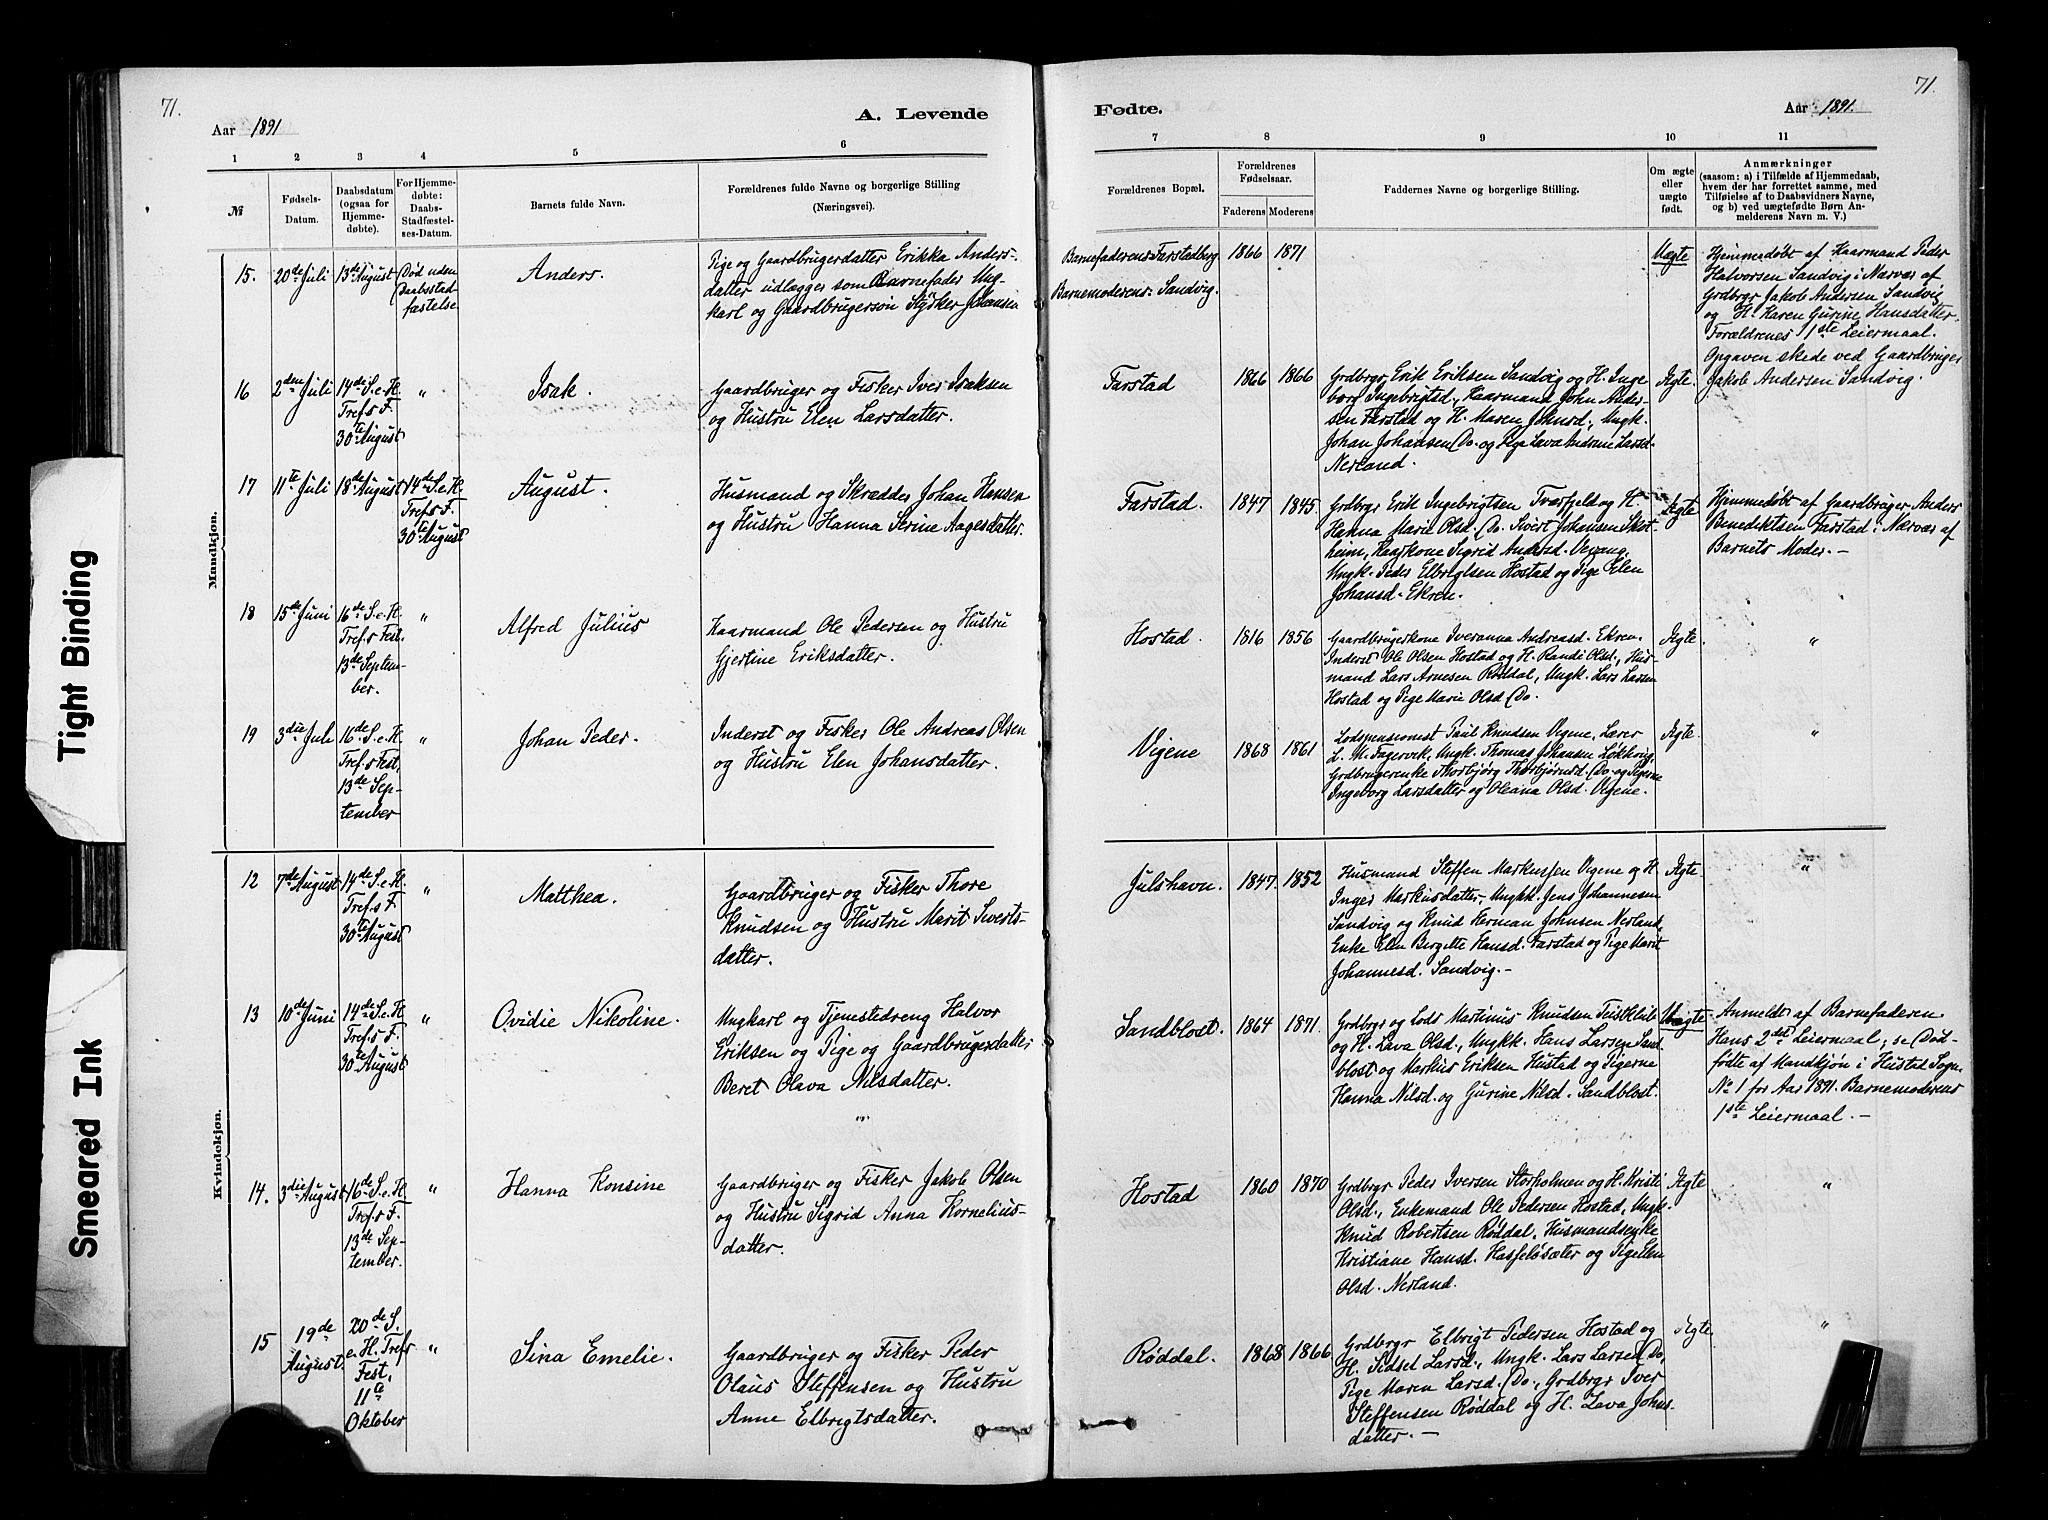 71.
Aar 1891
A. Levende
1
2
3
4
5
6
№
Fødsels-
Datum.
Daabsdatum
(ogsaa for
Hjemme-
døbte).
For Hjemme-
døbte:
Daabs-
Stadfæstel-
ses-Datum.
Barnets fulde Navn.
Forældrenes fulde Navne og borgerlige Stilling
(Næringsvei).
Mandkjøn.
15.
20de Juli
13de August
Død uden
Daabsstad
fæstelse
Anders.
Pige og Gaardbrugerdatter Erikka Anders-
datter udlægger som Barnefader Ung-
karl og Gaardbrugersøn Styrker Johansen
16
2den Juli
14de S. e. H.
Tref.s F.
30te August
"
Isak.
Gaardbruger og Fisker Iver Isaksen
og Hustru Elen Larsdatter.
17
11te Juli
18de August
14de S. e. H.
Tref.s F.
30te August
August.
Husmand og Skrædder Johan Hansen
og Hustru Hanna Serine Aagesdatter.
18
15de Juni
16de S. e. H.
Tref.s Fest.
13de Septem-
ber.
"
Alfred Julius
Kaarmand Ole Pedersen og Hustru
Gjertine Eriksdatter.
19
3die Juli
16de S. e. H.
Tref.s Fest,
13de Sep-
tember
"
Johan Peder.
Inderst og Fisker Ole Andreas Olsen
og Hustru Elen Johansdatter.
Kvindekjøn.
12
7de August
14de S. e. H.
Tref.s F.
30te August
"
Matthea.
Gaardbruger og Fisker Thore
Knudsen og Hustru Marit Siverts-
datter.
13
10de Juni
14de S. e. H.
Tref.s F.
30te August
"
Ovidie Nikoline.
Ungkarl og Tjenestedreng Halvor
Eriksen og Pige og Gaardbrugerdatter
Beret Olava Nilsdatter.
14.
3die August
16de S. e. H.
Tref.s F.
13de Sep-
tember.
"
Hanna Konsine
Gaardbruger og Fisker Jakob Olsen
og Hustru Sigrid Anna Kornelius-
datter.
15
19de
August.
20de S.
e. H. Tref.s
Fest,
11te
Oktober
"
Sina Emelie.
Gaardbruger og Fisker Peder
Olaus Steffensen og Hustru
Anne Elbrigtsdatter.
71.
Fødte.
Aar 1891.
7
8
9
10
11
Forældrenes Bopæl.
Forældrenes
Fødselsaar.
Faderens
Moderens
Faddernes Navne og Stilling.
Om ægte
eller
uægte
født.
Anmærkninger
(saasom: a) i Tilfælde af Hjemmedaab,
hvem der har forrettet samme, med
Tilføielse af to Daabsvidners Navne,
og b) ved uægtefødte Børn An-
melderens Navn m. V.)
Barnefaderens: Farstadberg
Barnemoderens: Sandvig.
1866
1871
Uægte
Hjemmedøbt af Kaarmand Peder
Halvorsen Sandvig i Nærvær af
Grdbrgr Jakob Andersen Sandvig
og H. Karen Gurine Hansdatter.
Forældrenes 1ste Leiermaal.
Opgaven skede ved Gaardbruger
Jakob Andersen Sandvig.
Farstad
1866
1866
Grdbrgr. Erik Eriksen Sandvig og H. Inge
borg Ingebrigtsd., Kaarmand John Ander-
sen Farstad og H. Maren Johnsd., Ungk.
Johan Johansen Do. og Pige Lava Andrine Larsd.
Nerland.
Ægte.
Farstad.
1847
1845.
Grdbrgr. Erik Ingebrigtsen Tværfjeld og H.
Hanna Marie Olsd. Do. Sivert Johansen Skot-
heim, Kaarkone Sigrid Andersd. Vevang,
Ungk. Peder Elbrigtsen Hostad og Pige Elen
Johansd. Ekren.
Ægte
Hjemmedøbt af Gaardbruger Anders
Benediktsen Farstad i Nærvær af
Barnets Moder. —
Hostad.
1816
1856
Gaardbrugerkone Iveranna Andreasd. Ekren.
Inderst Ole Olsen Hostad og H. Randi Olsd., Hus-
mand Lars Arnesen Røddal, Ungk. Lars Larsen
Hostad og Pige Marie Olsd. Do.
Ægte.
"
Vigene
1868
1861
Lodspensionist Paul Knudsen Vigene, Lærer
L. M. Fagervik, Ungk. Thomas Johansen Løkkevig,
Grdbrugerenke Thorbjørg Thorbjørnsd. Do. og Pigerne
Ingeborg Larsdatter og Oleana Olsd. Vigene.
Ægte.
"
Julshavn.
1847.
1852
Husmand Steffen Markussen Vigene og H.
Inger Markusdatter, Ungkk. Jens Johannesen
Sandvig og Knud Herman Johnsen Nerland,
Enke Elen Bergitte Hansd. Farstad og Pige Marit
Johannesd. Sandvig. —
Ægte.
"
Sandblost.
1864
1871.
Grdbrgr og Lods Martinus Knudsen Teistklub
og H. Lava Olsd., Ungkk. Hans Larsen Sand-
blost og Markus Eriksen Hustad og Pigerne
Hanna Nilsd. og Gurine Nilsd. Sandblost.
Uægte
Anmeldt af Barnefaderen
Hans 2det Leiermaal; se Død-
fødte af Mandkjøn i Hustad Sogn
No 1 for Aar 1891. Barnemoderens
1ste Leiermaal. —
Hostad
1860
1870
Grdbrgr Peder Iversen Storholmen og H. Kristi
Olsd., Enkemand Ole Pedersen Hostad, Ungk.
Knud Robertsen Røddal, Husmandsenke
Kristiane Hansd. Hasfeløsæter og Pige Elen
Olsd. Nerland.
Ægte
"
Røddal.
1868
1866
Grdbrgr Elbrigt Pedersen Hostad og
H. Sidsel Larsd., Ungk. Lars Larsen Do,
Pige Maren Larsd. Do, Grdbrgr Iver
Steffensen Røddal og H. Lava Johns-
datter. —
Ægte.
"
Tight Binding
Smeared Ink